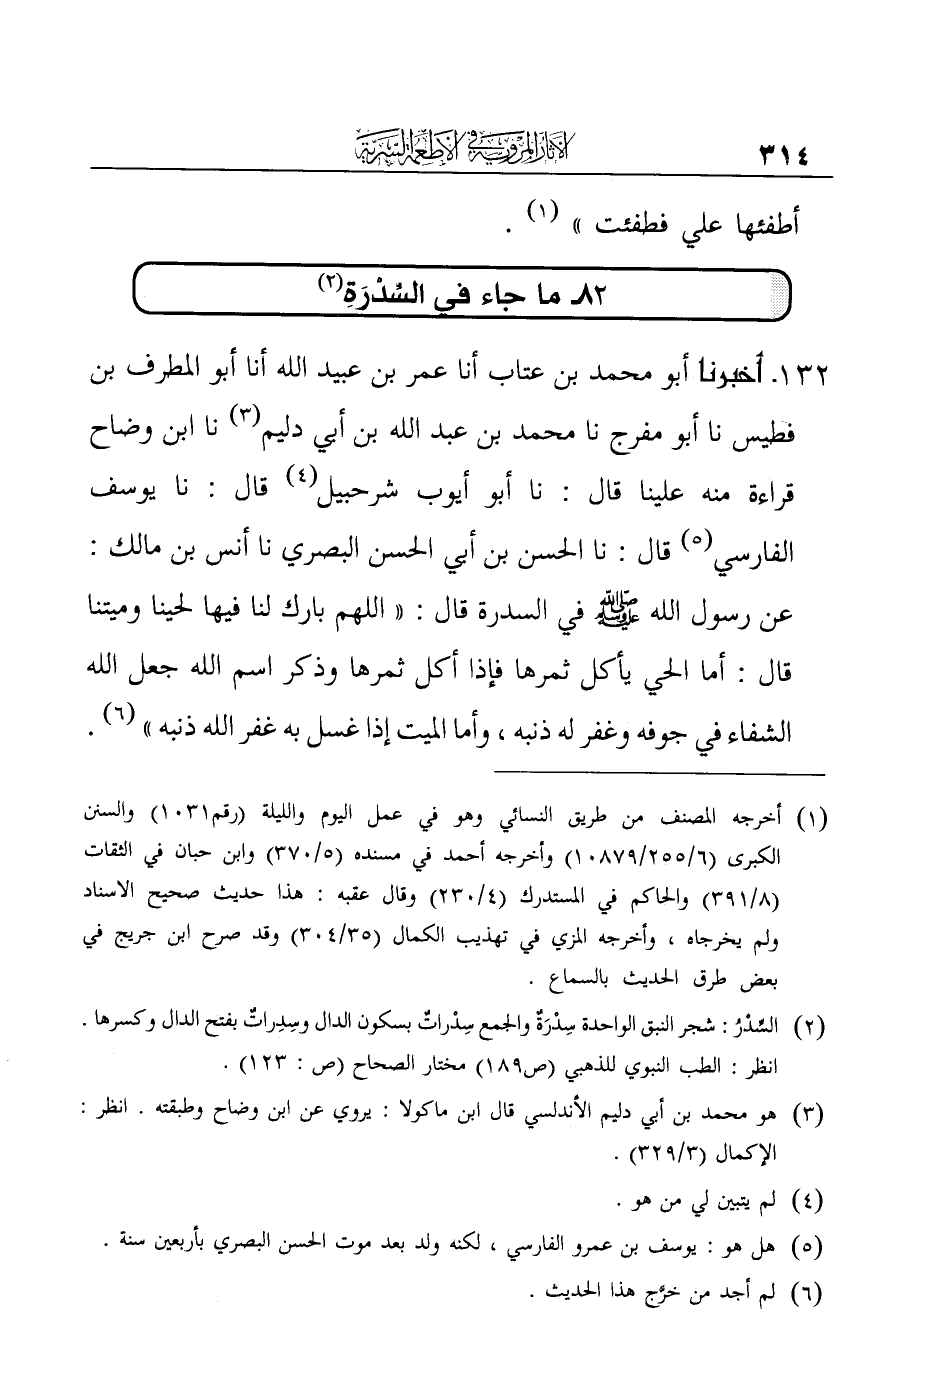 ٣١٤
الآثار المروية في الأطعمة السرية
أطفئها علي فطفئت » (١) .
٨٢ـ ما جاء في السِّدْرَةِ(٢)
١٣٢. أخبرنا أبو محمد بن عتاب أنا عمر بن عبيد الله أنا أبو المطرف بن
فطيس نا أبو مفرج نا محمد بن عبد الله بن أبي دليم(٣) نا ابن وضاح
قراءة منه علينا قال : نا أبو أيوب شرحبيل(٤) قال : نا يوسف
الفارسي(٥) قال : نا الحسن بن أبي الحسن البصري نا أنس بن مالك :
عن رسول الله ﷺ في السدرة قال : « اللهم بارك لنا فيها لحينا وميتنا
قال : أما الحي يأكل ثمرها فإذا أكل ثمرها وذكر اسم الله جعل الله
الشفاء في جوفه وغفر له ذنبه ، وأما الميت إذا غسل به غفر الله ذنبه » (٦) .
(١) أخرجه المصنف من طريق النسائي وهو في عمل اليوم والليلة (رقم١٠٣١) والسنن
الكبرى (١٠٨٧٩/٢٥٥/٦) وأخرجه أحمد في مسنده (٣٧٠/٥) وابن حبان في الثقات
(٣٩١/٨) والحاكم في المستدرك (٢٣٠/٤) وقال عقبه : هذا حديث صحيح الاسناد
ولم يخرجاه ، وأخرجه المزي في تهذيب الكمال (٣٠٤/٣٥) وقد صرح ابن جريج في
بعض طرق الحديث بالسماع .
(٢) السِّدْرُ : شجر النبق الواحدة سِدْرَةٌ والجمع سِدْراتٌ بسكون الدال وسِدِراتٌ بفتح الدال وكسرها .
انظر : الطب النبوي للذهبي (ص١٨٩) مختار الصحاح (ص : ١٢٣) .
(٣) هو محمد بن أبي دليم الأندلسي قال ابن ماكولا : يروي عن ابن وضاح وطبقته . انظر :
الإكمال (٣٢٩/٣) .
(٤) لم يتبين لي من هو .
(٥) هل هو : يوسف بن عمرو الفارسي ، لكنه ولد بعد موت الحسن البصري بأربعين سنة .
(٦) لم أجد من خرَّج هذا الحديث .